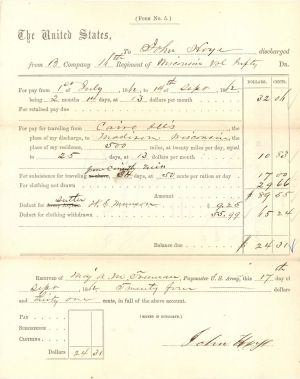 (Form No. 5.)
The United States,
To John Hoye discharged
from B. Company 16th Regiment of Wisconsin Vol Infty Dr.
DOLLARS. CENTS.
For pay from 1st of July 1862, to 14th Sept, 1862,
being 2 months 14 days, at 13 dollars per month 32 06
For retained pay due
For pay for traveling from Cairo Ills
place of my discharge, the
place of residence, to Madison, Wisconsin
500 miles, at twenty miles per day, equal
to 25 days, at 13 dollars per month 10 83
For subsistence for traveling as above, days, at 50 cents per ration or day 17 00
For clothing not drawn 29 66
Amount $ 89 55
Deduct for Sutler H. C. Munson 9.25
Deduct for clothing withdrawn 55.99 65 24
Balance due $ 24 31
Received of Maj'r Paymaster U. S. Army, this 17th of
Sept 1862 Twenty four dollars and
thirty one cents, in full of the above account.
Pay
Subsistence
Clothing
Dollars 24 31
(SIGNED IN DUPLICATE.)
John Hoye